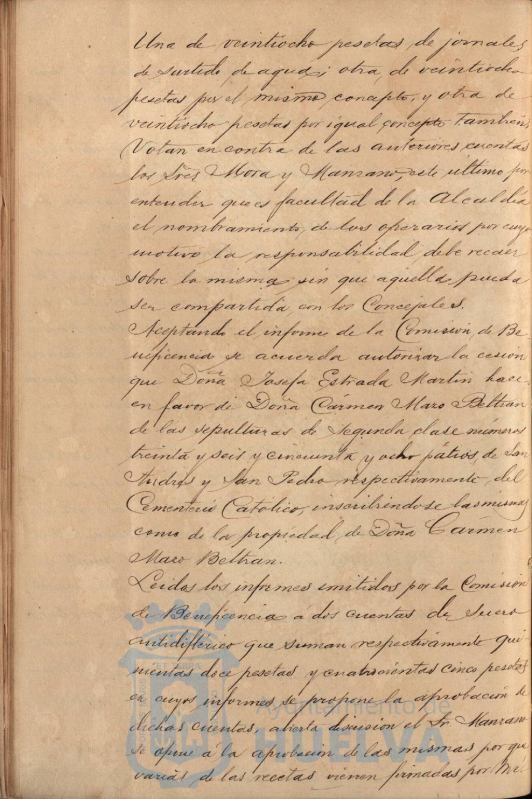 Una de veintiocho pesetas de jornales
de surtido de agua; otra de veintiocho
pesetas por el mismo concepto, y otra de
veintiocho pesetas por igual concepto tambien
Votan en contra de las anteriores cuentas
los Sres Mora y Manzano, este ultimo por
entender que es facultad de la Alcaldia
el nombramiento de los operarios por cuyo
motivo la responsabilidad debe recaer
sobre la misma sin que aquella pueda
ser compartida con los Concejales.
Aceptando el informe de la Comision de Be
neficencia se acuerda autorizar la cesion
que Doña Josefa Estrada Martin hace
en favor de Doña Cármen Maro Beltran
de las sepulturas de Segunda clase números
treinta y seis y cincuenta y ocho patios de San
Andres y San Pedro respectivamente del
Cementerio Catolico, inscribiendose las mismas
como de la propiedad de Doña Carmen
Maro Beltran.
Leidos los informes emitidos por la Comision
de Beneficencia a dos cuentas de suero
antidiftérico que suman respectivamente qui
nientas doce pesetas y cuatrocientas cinco pesetas
en cuyos informes se propone la aprobacion de
dichas cuentas, abierta discusion el Sr. Manzano
se opone á la aprobacion de las mismas por que
varias de las recetas vienen firmadas por
Ayuntamiento de
HUELVA